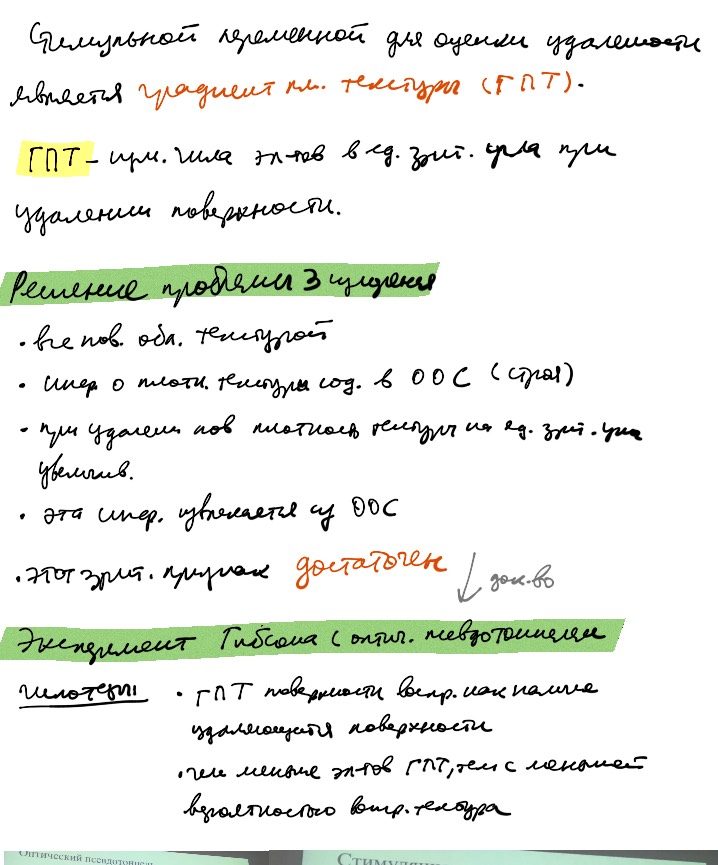 Стимульной переменной для оценки удаленности
является градиент пл. текстуры (ГПТ).
ГПТ - изм. числа эл-тов в ед. зрит. угла при
удалении поверхности.
Решение проблемы 3 измерения
• все пов. обл. текстурой
• инфр о плотн. текстуры сод. в ООС (строя)
• при удалении пов плотность текстуры на ед. зрит. угла
увелич.
• эта инфр. извлекается из ООС
• этот зрит. признак достаточен
док-во
Эксперимент Гибсона с оптич. псевдотоннелем
гипотезы • ГПТ поверхности воспр. как наличие
удаляющейся поверхности
• чем меньше эл-тов ГПТ, тем с меньшей
вероятностью воспр. текстура
Оптический псевдотоннель Стимуляци